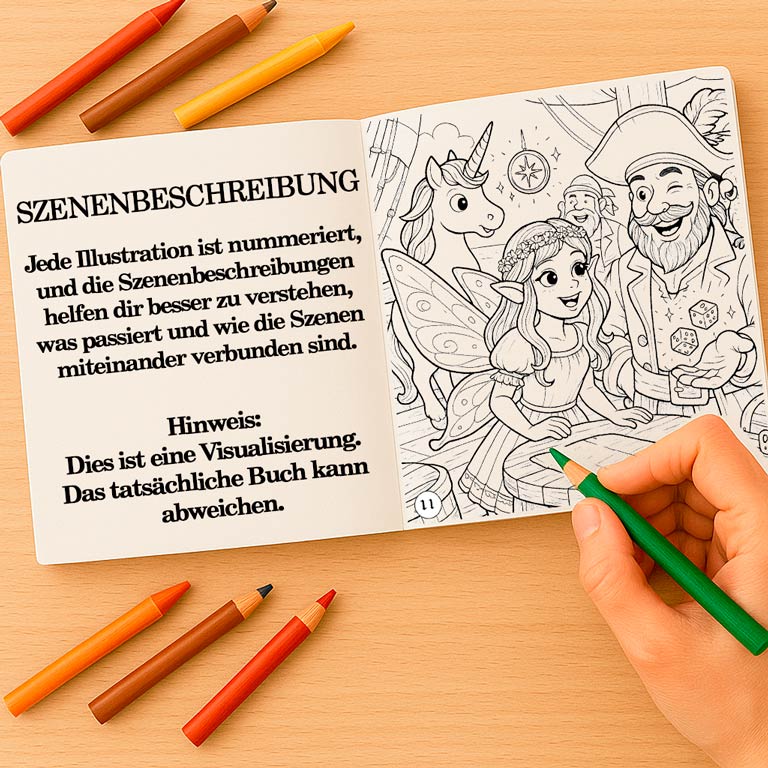 SZENENBESCHREIBUNG
Jede Illustration ist nummeriert,
und die Szenenbeschreibungen
helfen dir besser zu verstehen,
was passiert und wie die Szenen
miteinander verbunden sind.
Hinweis:
Dies ist eine Visualisierung.
Das tatsächliche Buch kann
abweichen.
11